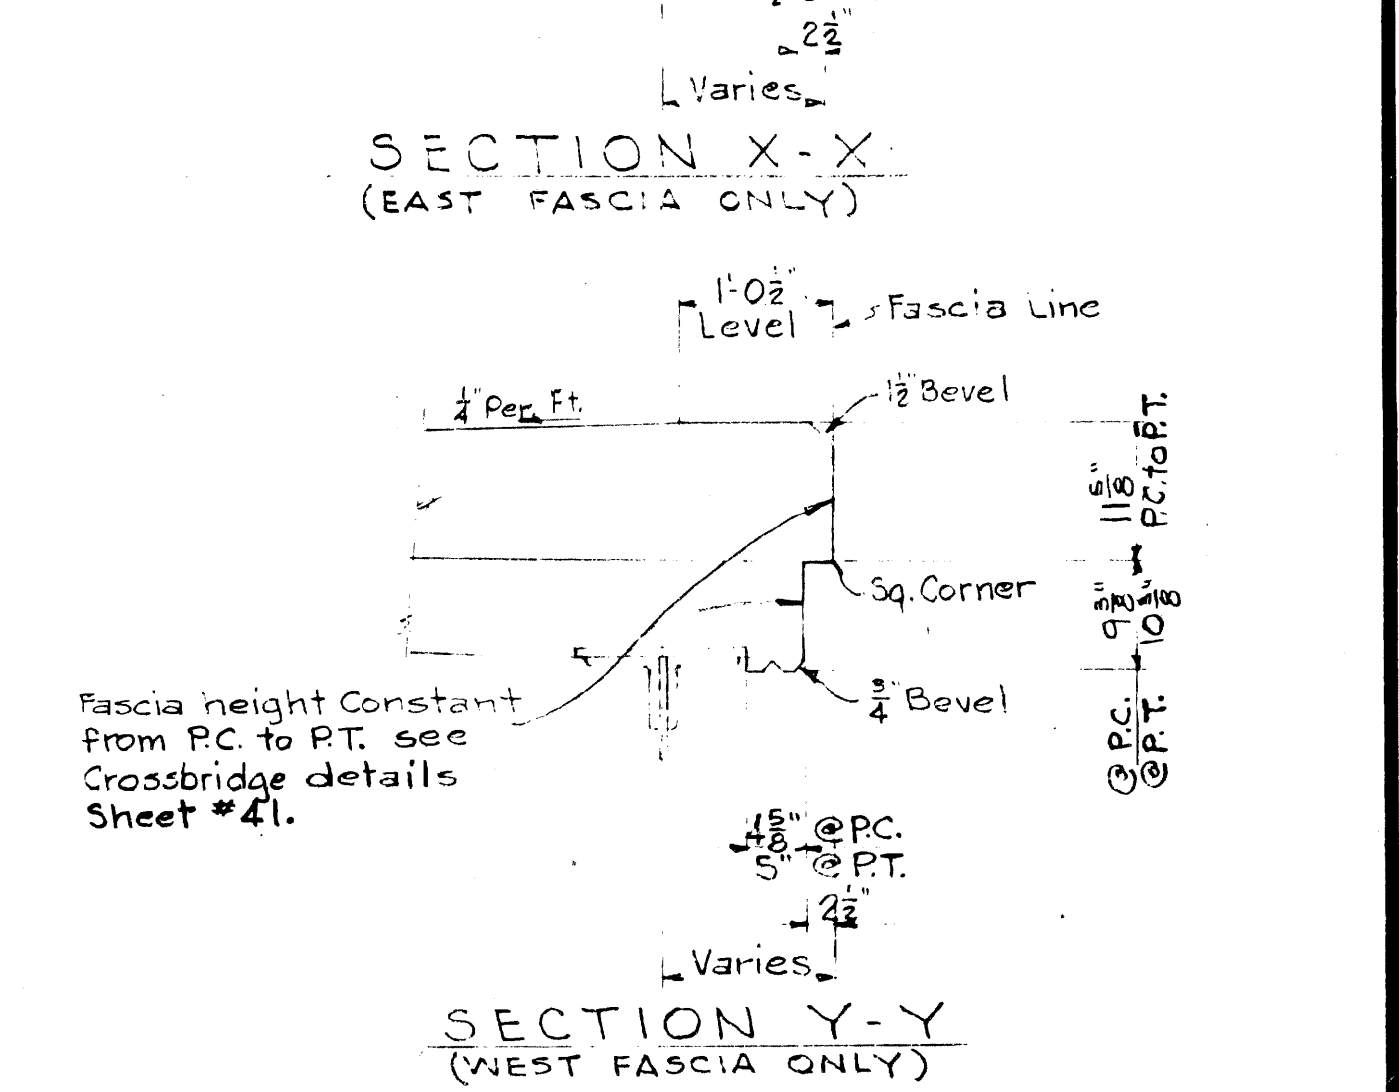 2 1/2"
Varies
SECTION X-X
(EAST FASCIA ONLY)
1'-0 1/2"
Level
Fascia Line
1/4" Per Ft.
1 1/2" Bevel
11 5/8"
P.C. to P.T.
Sq. Corner
9 3/8" @ P.C.
10 5/8" @ P.T.
3/4" Bevel
Fascia height Constant
from P.C. to P.T. see
Crossbridge details
Sheet #41.
4 5/8" @ P.C.
5" @ P.T.
2 1/2"
Varies
SECTION Y-Y
(WEST FASCIA ONLY)